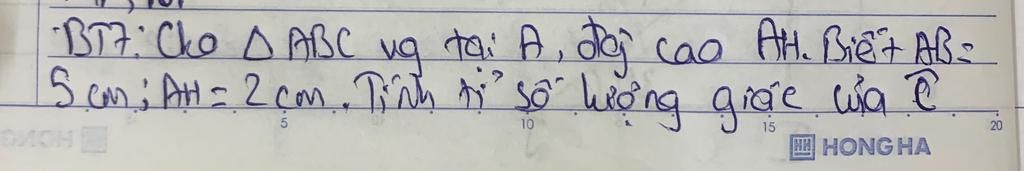 BT7: Cho Δ ABC vg tại A, đg cao AH. Biết AB=
5 cm; AH = 2 cm. Tính tỉ số lượng giác của Ĉ
5 10 15 20
HH HONG HA